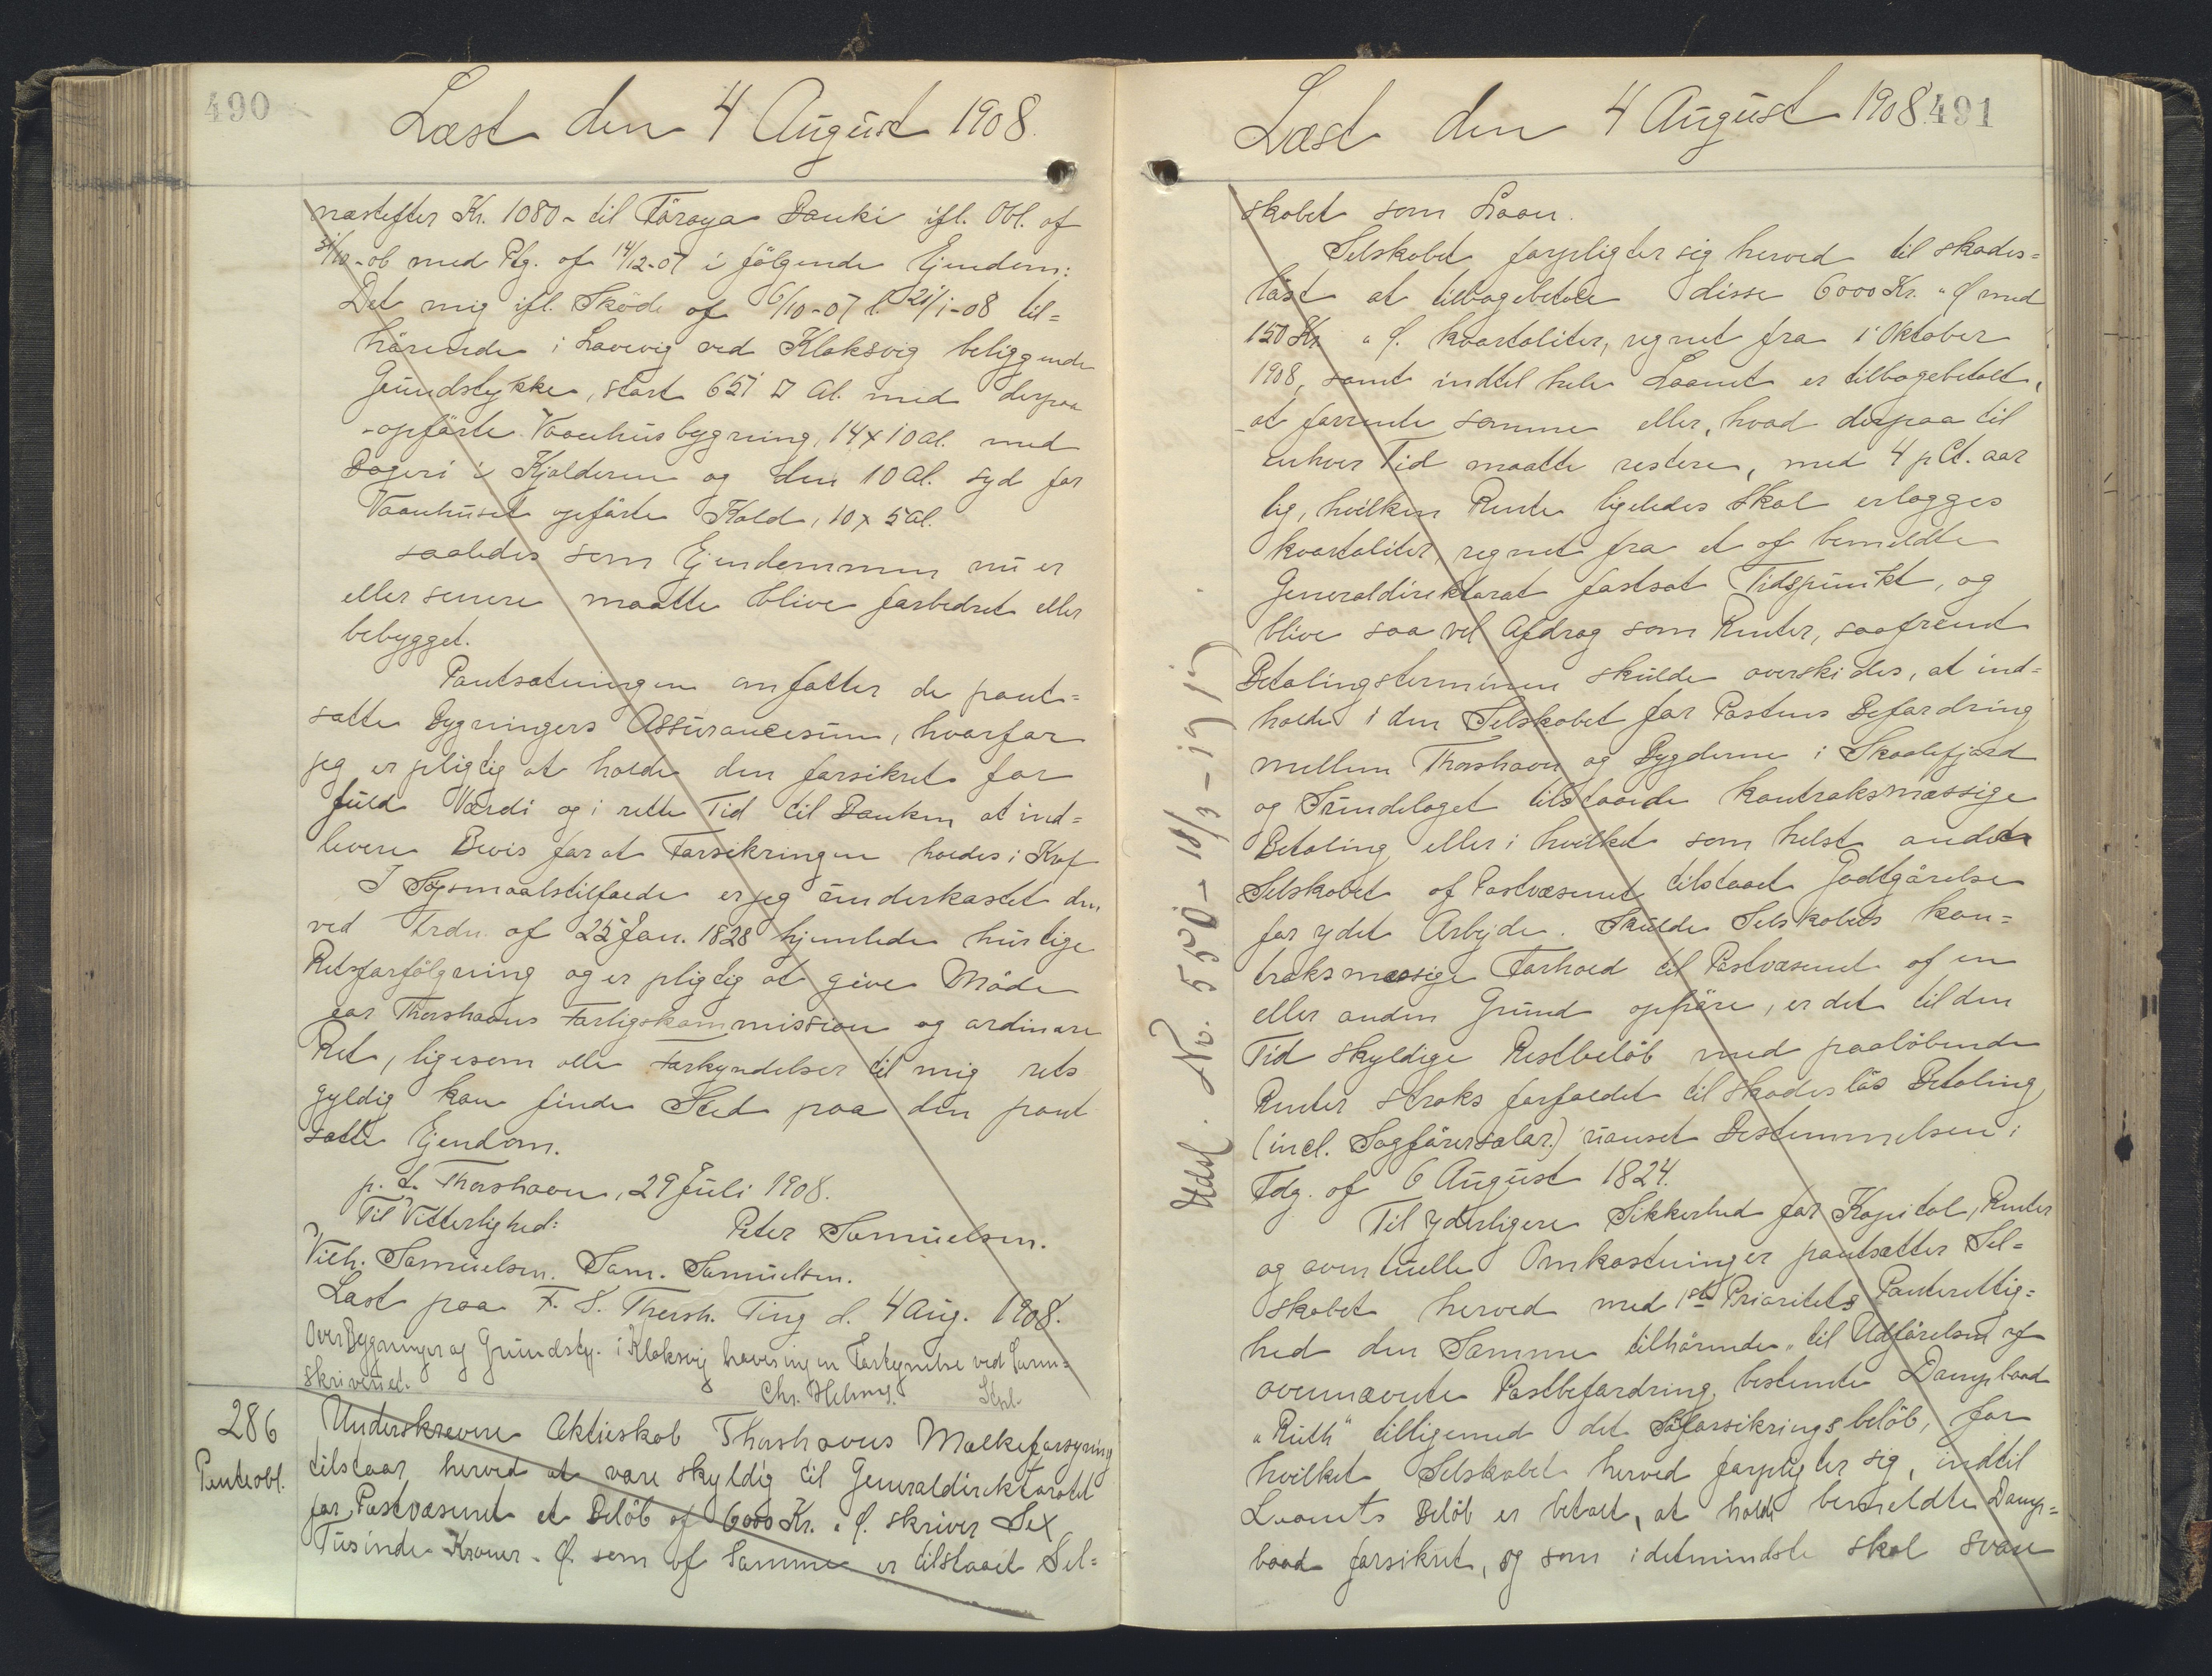 490
Læst den 4 August 1908.
næstefter Kr. 1080 - til Föroya Banki ifl. Obl. af
31/10-06 med Ptg. af 14/12-07 i följende Ejendom:
Det mig ifl. Sköde af 6/10-07 l. 21/1-08 til=
hörende i Laavvig ved Klaksvig beliggende
Grundstykke, stort 651 □ Al. med derpaa
opförte Vaanhusbygning, 14 x 10 Al. med
Bageri i Kjælderen og den 10 Al. syd for
Vaanhuset opförte Kold, 10 x 5 Al.
saaledes som Ejendommen nu er
eller senere maatte blive forbedret eller
bebygget.
Pantsætningen omfatter de pant=
satte Bygningers Assurancesum, hvorfor
jeg er pligtig at holde den forsikret for
fuld Værdi og i rette Tid til Banken at ind=
levere Bevis for at Forsikringen holdes i Kraf
I Sögsmaalstilfælde er jeg underkastet den
ved Frdn. af 25 Jan. 1828 hjemlede hurtige
Retsforfölgning og er pligtig at give Möde
for Thorshavns Forligskommission og ordinære
Ret, ligesom alle Forkyndelser til mig rets
gyldig kan finde Sted paa den pant
satte Ejendom.
p. t. Thorshavn, 29 Juli 1908.
Til Vitterlighed:
Peter Samuelsen.
Vilh. Samuelsen. Sam. Samuelsen.
Læst paa F. S. Thorsh. Ting d. 4 Aug. 1908.
Over Bygninger og Grundsty. i Klaksvig haves ingen Forkyndelse ved Soren=
skriveriet.
Chr. Helms.
286
Panteobl.
Underskrevne Aktieskab Thorshavns Mælkeforsyning
tilstaar herved at være skyldig til Generaldirektoratet
for Postvæsenet et Belöb af 6000 Kr. " Ø. skriver Sex
Tusinde Kroner - Ø. som af Samme er tilstaaet Sel=
Læst den 4 August 1908.
491
skabet som Laan.
Selskabet forpligter sig herved til skades=
löst at tilbagebetale disse 6000 Kr. " Ø med
150 Kr " Ø. kvartaliter, regnet fra 1 Oktober
1908, samt indtil hele Laanet er tilbagebetalt,
at forrente samme eller, hvad derpaa til
enhver Tid maatte restere, med 4 pCt. aar
lig, hvilken Rente ligeledes skal erlægges
kvartaliter, regnet fra et af bemeldte
Generaldirektorat fastsat Tidspunkt, og
blive saa vel Afdrag som Renter, saafremt
Betalingsterminen skulde overskides, at ind=
holde i den Selskabet for Postens Befordring
mellem Thorshavn og Bygderne i Skaalefjord
og Sundelaget tilstaaede kontraktsmæssige
Betaling eller i hvilket som helst andet
Selskabet af Postvæsenet tilstaaet Godtgörelse
for ydet Arbejde. Skulde Selskabets kon=
traksmæssige Forhold til Postvæsenet af en
eller anden Grund ophöre, er det til den
Tid skyldige Restbelöb med paalöbende
Renter straks forfaldet til skadeslös Betaling
(incl. Sagförersalar.) uanset Bestemmelsen i
Fdg. af 6 August 1824.
Til yderligere Sikkerhed for Kapital, Renter
og eventuelle Omkostninger pantsætter Sel=
skabet herved med 1ste Prioritets Panterettig=
hed den Samme tilhörende, til Udförelsen af
ovennævnte Postbefordring bestemte Dampbaad
"Ruth" tilligemed det Söforsikringsbelöb, for
hvilket Selskabet herved forpligter sig, indtil
Laanets Belöb er betalt, at holde bemeldte Damp=
baad forsikret, og som i detmindste skal svare
Udsl. No. 550 - 18/3 - 1917